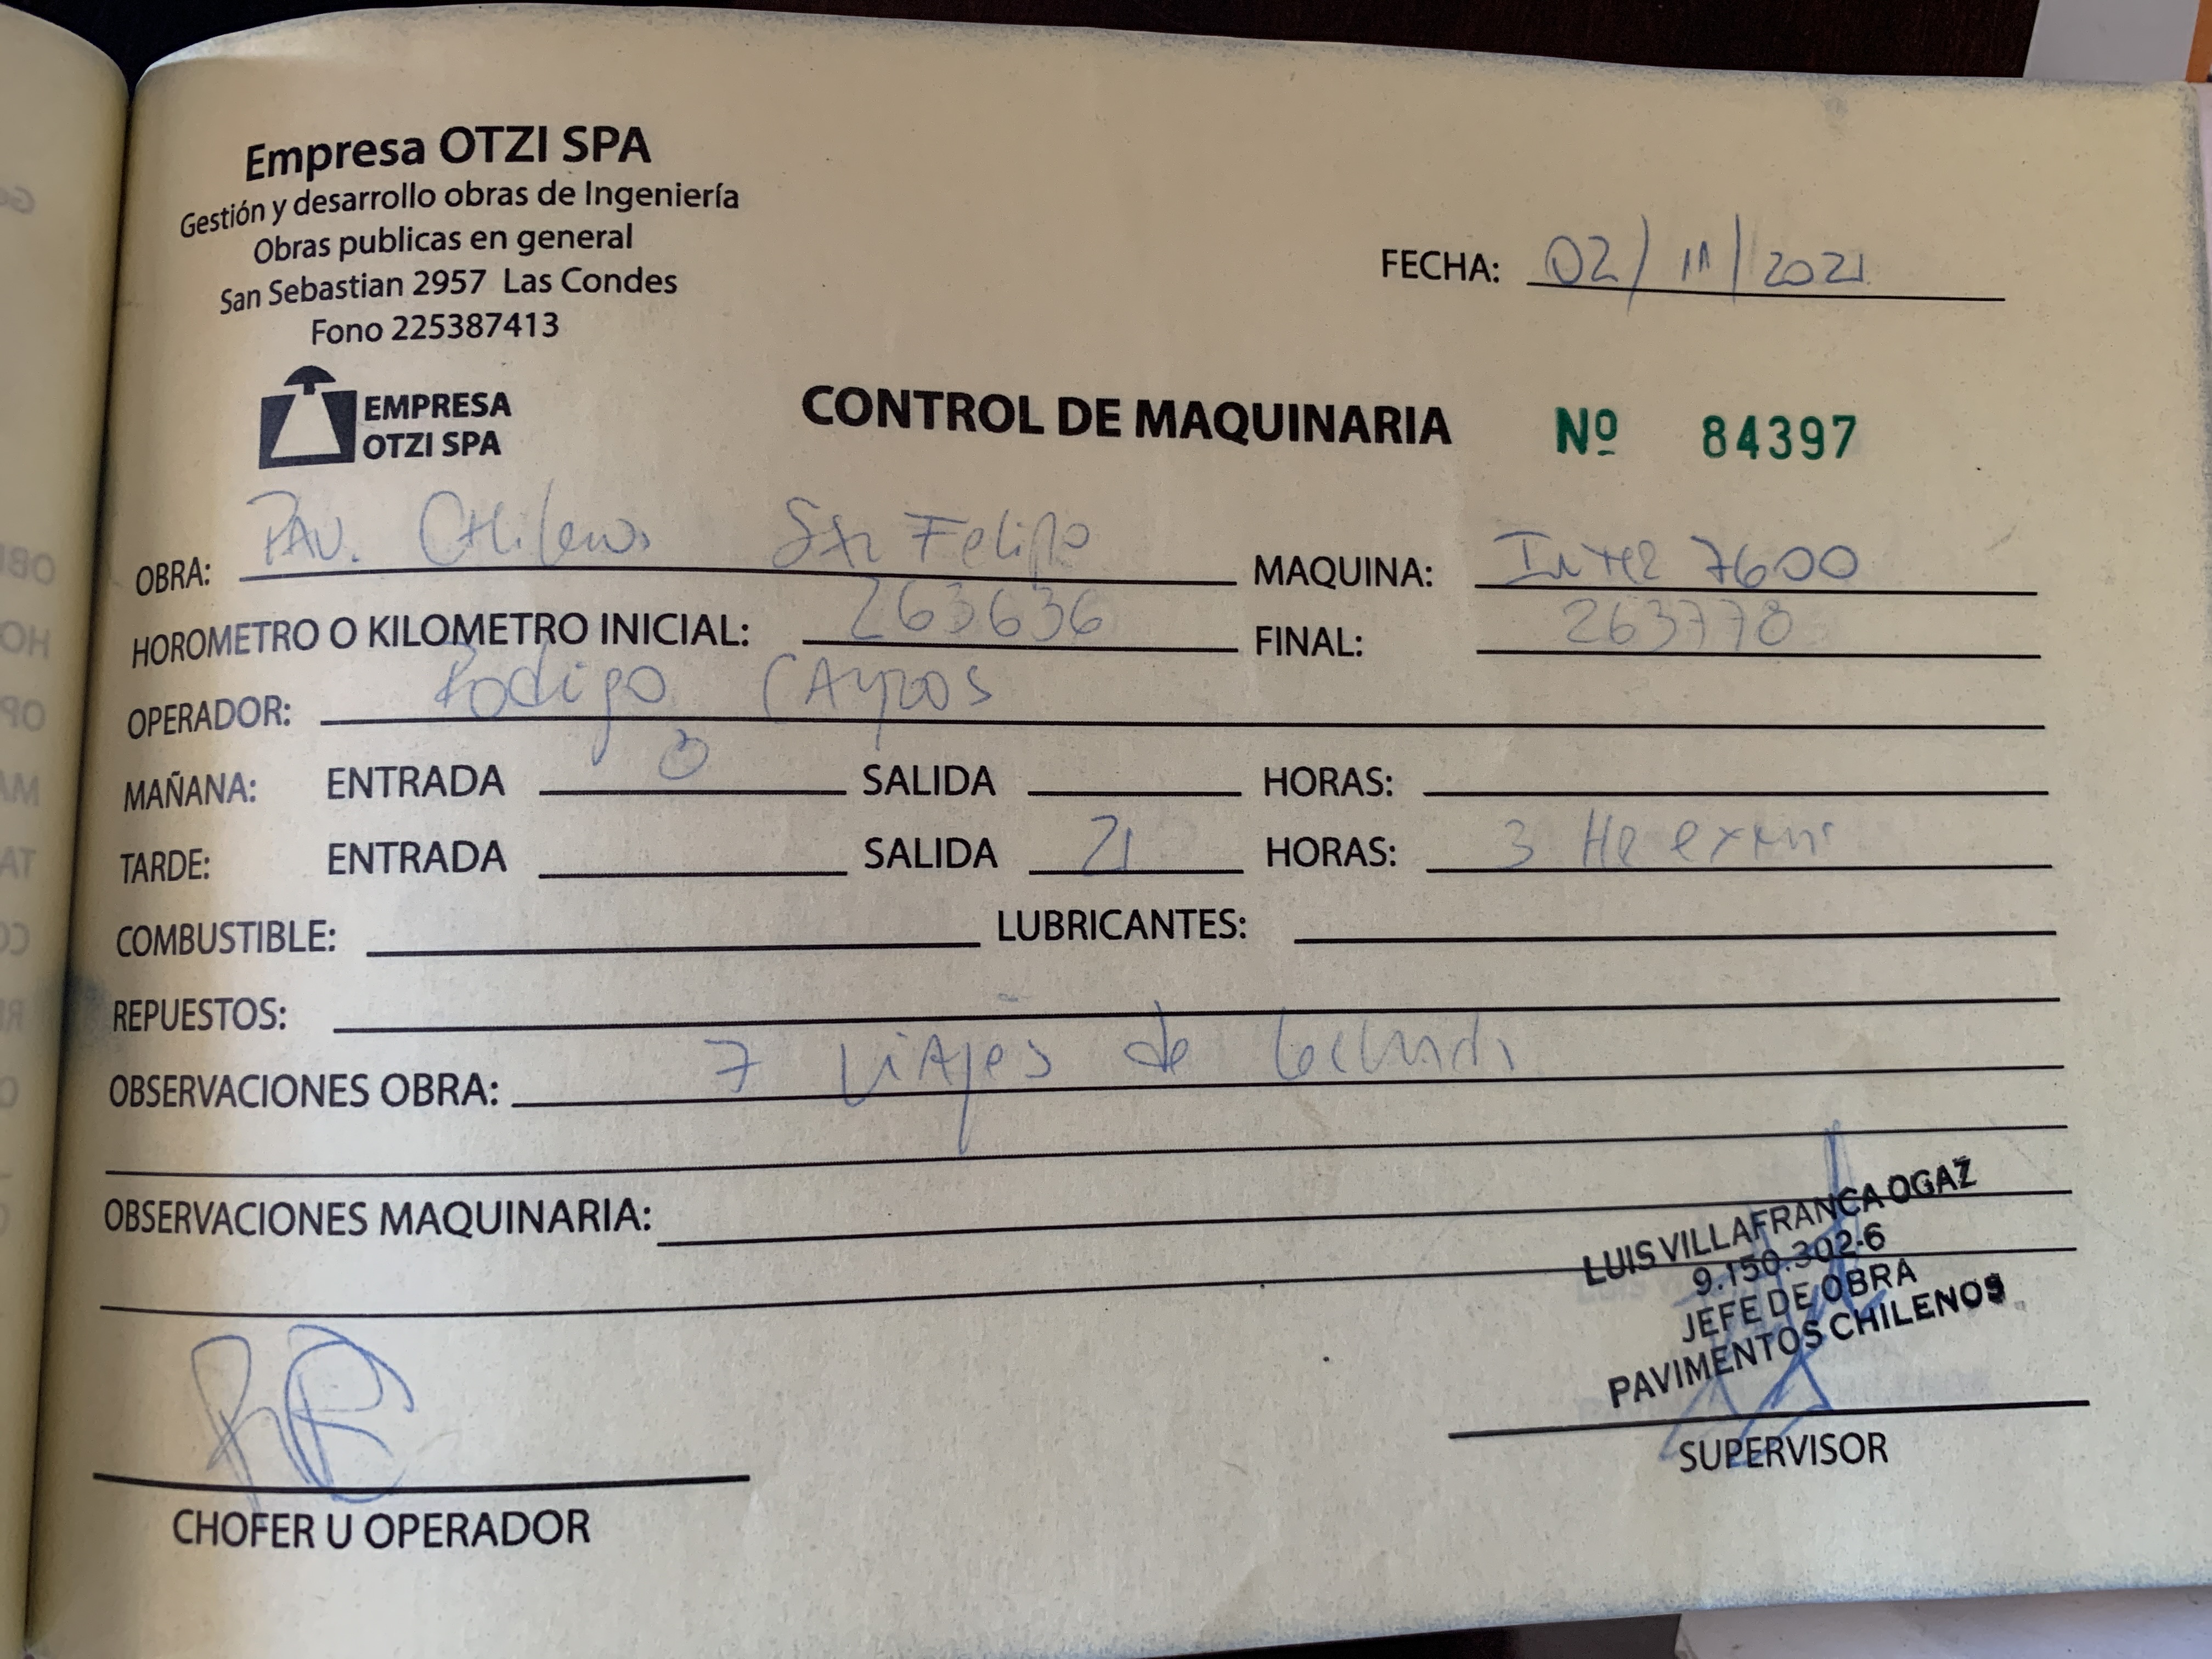 Empresa OTZI SPA
Gestión y desarrollo obras de Ingeniería
Obras publicas en general
San Sebastian 2957 Las Condes
Fono 225387413
FECHA: 02/11/2021
EMPRESA
OTZI SPA
CONTROL DE MAQUINARIA Nº 84397
OBRA: PAV. CHilenos Sn Felipe MAQUINA: Inter 7600
HOROMETRO O KILOMETRO INICIAL: 263636 FINAL: 263770
OPERADOR: Rodrigo CAmpos
MAÑANA: ENTRADA 8 SALIDA HORAS:
TARDE: ENTRADA SALIDA 21 HORAS: 3 Hr extras
COMBUSTIBLE: LUBRICANTES:
REPUESTOS:
OBSERVACIONES OBRA: 7 ViAjes de
OBSERVACIONES MAQUINARIA:
LUIS VILLAFRANCA OGAZ
9.150.302-6
JEFE DE OBRA
PAVIMENTOS CHILENOS
CHOFER U OPERADOR
SUPERVISOR